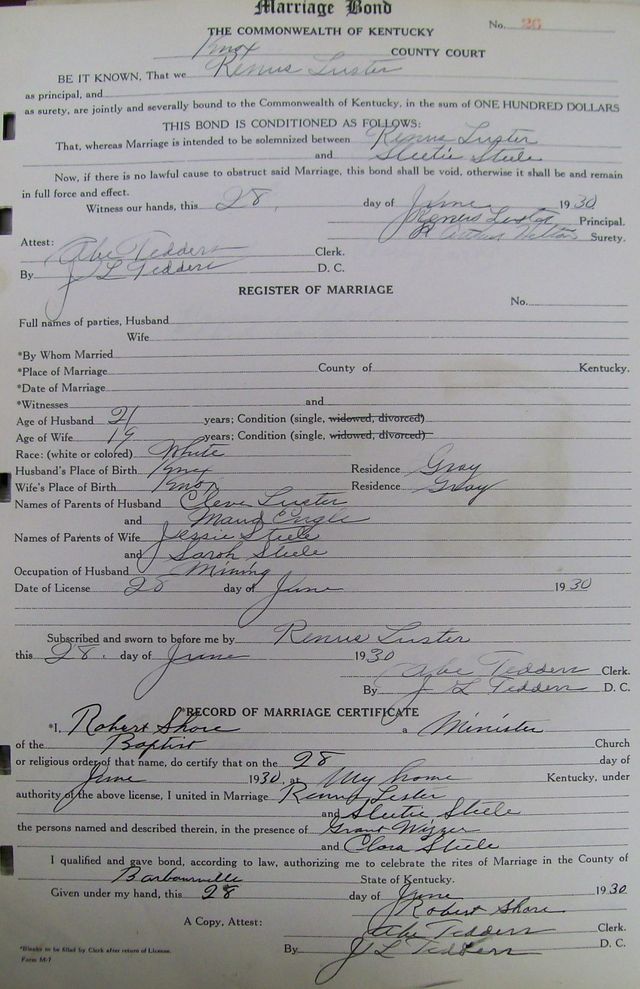 Marriage Bond
No. 26
THE COMMONWEALTH OF KENTUCKY
Knox COUNTY COURT
BE IT KNOWN, That we Renus Luster
as principal, and
as surety, are jointly and severally bound to the Commonwealth of Kentucky, in the sum of ONE HUNDRED DOLLARS
THIS BOND IS CONDITIONED AS FOLLOWS:
That, whereas Marriage is intended to be solemnized between Renus Luster
and Sleetie Steele
Now, if there is no lawful cause to obstruct said Marriage, this bond shall be void, otherwise it shall be and remain
in full force and effect.
Witness our hands, this 28 day of June 1930
Renus Luster Principal.
Attest: Arthur Surety.
Abe Tedders Clerk.
By J L Tedders D. C.
REGISTER OF MARRIAGE
No.
Full names of parties, Husband
Wife
*By Whom Married
*Place of Marriage County of Kentucky.
*Date of Marriage
*Witnesses and
Age of Husband 21 years; Condition (single, widowed, divorced)
Age of Wife 19 years; Condition (single, widowed, divorced)
Race: (white or colored) White
Husband's Place of Birth Knox Residence Gray
Wife's Place of Birth Knox Residence Gray
Names of Parents of Husband Cleve Luster
and Maud Engle
Names of Parents of Wife Jessie Steele
and Sarah Steele
Occupation of Husband Mining
Date of License 28 day of June 1930
Subscribed and sworn to before me by Renus Luster
this 28. day of June 1930
Abe Tedders Clerk.
By J L Tedders D. C.
*RECORD OF MARRIAGE CERTIFICATE
*I, Robert Shore a Minister
of the Baptist Church
or religious order of that name, do certify that on the 28 day of
June 1930, at My home Kentucky, under
authority of the above license, I united in Marriage Lester
and Sleetie Steele
the persons named and described therein, in the presence of Grant
and Clora Steele
I qualified and gave bond, according to law, authorizing me to celebrate the rites of Marriage in the County of
Barbourville State of Kentucky.
Given under my hand, this 28 day of June 1930
Robert Shore
A Copy, Attest: Abe Tedders Clerk.
By J L Tedders D. C.
*Blanks to be filled by Clerk after return of License.
Form M-7